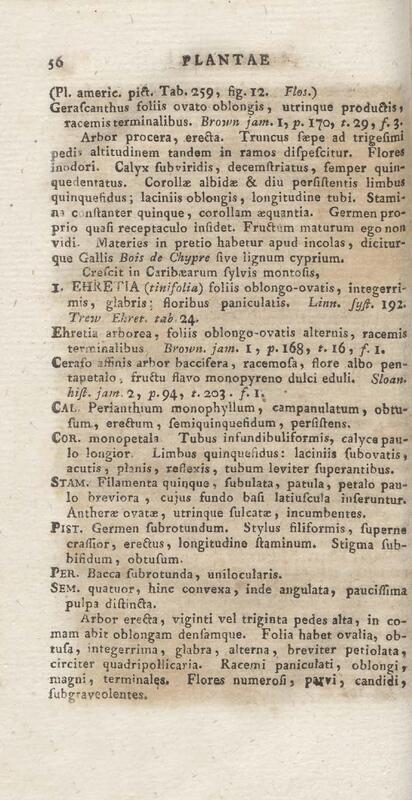 56 PLANTAE
(Pl. americ. pict. Tab. 259, fig. 12. Flos.)
Gerascanthus foliis ovato oblongis, utrinque productis,
racemis terminalibus. Brown jam. 1, p. 170, t. 29, f. 3.
Arbor procera, erecta. Truncus sæpe ad trigesimi
pedis altitudinem tandem in ramos dispescitur. Flores
inodori. Calyx subviridis, decemstriatus, semper quin-
quedentatus. Corollæ albidæ & diu persistentis limbus
quinquefidus; laciniis oblongis, longitudine tubi. Stami-
na constanter quinque, corollam æquantia. Germen pro-
prio quasi receptaculo insidet. Fructum maturum ego non
vidi. Materies in pretio habetur apud incolas, dicitur-
que Gallis Bois de Chypre sive lignum cyprium.
Crescit in Caribæarum sylvis montosis,
1. EHRETIA (tinifolia) foliis oblongo-ovatis, integerri-
mis, glabris; floribus paniculatis. Linn. syst. 192.
Trew Ehret. tab. 24.
Ehretia arborea, foliis oblongo-ovatis alternis, racemis
terminalibus Brown. jam. 1, p. 168, t. 16, f. 1.
Ceraso affinis arbor baccifera, racemosa, flore albo pen-
tapetalo, fructu flavo monopyreno dulci eduli. Sloan.
hist. jam. 2, p. 94, t. 203. f. 1.
CAL. Perianthium monophyllum, campanulatum, obtu-
sum, erectum, semiquinquefidum, persistens.
COR. monopetala Tubus infundibuliformis, calyce pau-
lo longior. Limbus quinquefidus: laciniis subovatis,
acutis, planis, reflexis, tubum leviter superantibus.
STAM. Filamenta quinque, subulata, patula, petalo pau-
lo breviora, cujus fundo basi latiuscula inseruntur.
Antheræ ovatæ, utrinque sulcatæ, incumbentes.
PIST. Germen subrotundum. Stylus filiformis, superne
crassior, erectus, longitudine staminum. Stigma sub-
bifidum, obtusum.
PER. Bacca subrotunda, unilocularis.
SEM. quatuor, hinc convexa, inde angulata, paucissima
pulpa distincta.
Arbor erecta, viginti vel triginta pedes alta, in co-
mam abit oblongam densamque. Folia habet ovalia, ob-
tusa, integerrima, glabra, alterna, breviter petiolata,
circiter quadripollicaria. Racemi paniculati, oblongi,
magni, terminales. Flores numerosi, parvi, candidi,
subgraveolentes.